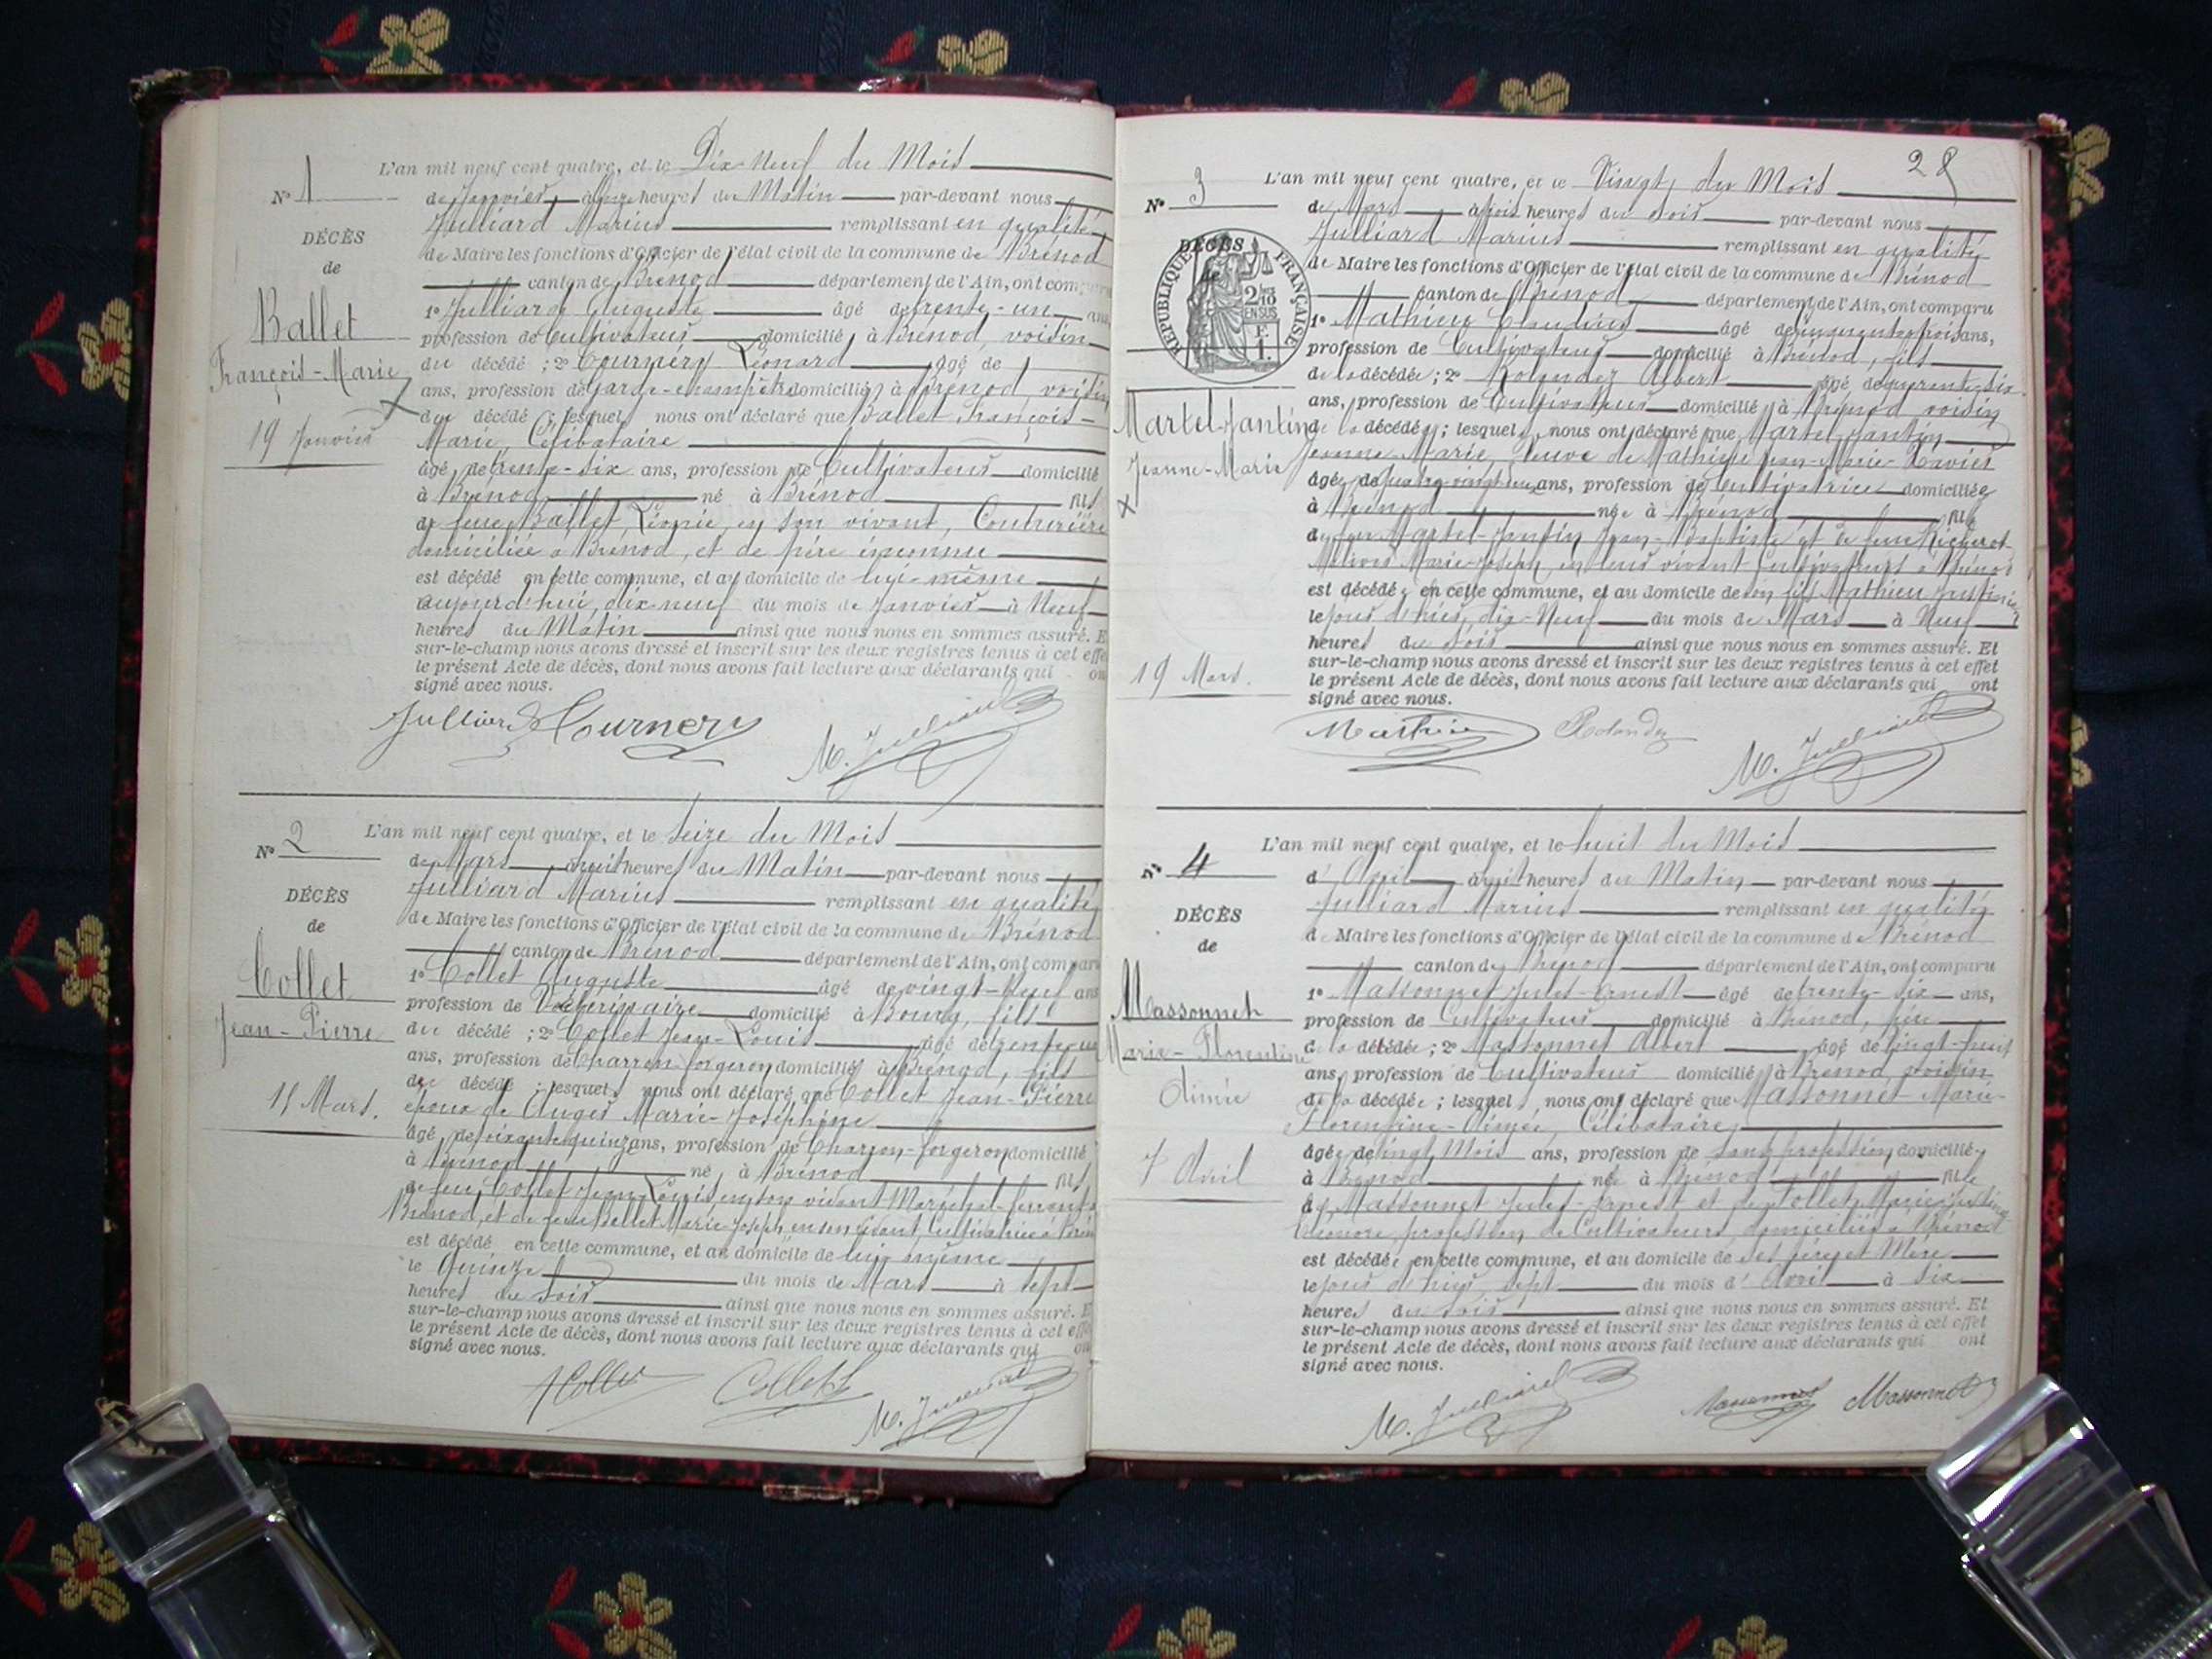 N° 1
DÉCÈS
de
Ballet
François-Marie
19 Janvier
L'an mil neuf cent quatre, et le Dix-Neuf du Mois
de Janvier, à onze heures du Matin par-devant nous
Julliard Marius remplissant en qualité
de Maire les fonctions d'Officier de l'état civil de la commune de Brénod
canton de Brénod département de l'Ain, ont comparu
1° Julliard Auguste âgé de trente-un ans
profession de Cultivateur domicilié à Brénod, voisin
du décédé ; 2° Cournéry Léonard âgé de
ans, profession de Garde-champêtre domiciliés à Brénod, voisin
du décédé ; lesquels nous ont déclaré que Ballet François-
Marie, Célibataire
âgé de trente-six ans, profession de Cultivateur domicilié
à Brénod né à Brénod fils
de feue Ballet Léonie, en son vivant, Couturière
domiciliée à Brénod, et de père inconnu
est décédé en cette commune, et au domicile de lui-même
aujourd'hui, dix-neuf du mois de Janvier à Neuf
heures du Matin ainsi que nous nous en sommes assuré. E
sur-le-champ nous avons dressé et inscrit sur les deux registres tenus à cet effe
le présent Acte de décès, dont nous avons fait lecture aux déclarants qui on
signé avec nous.
Julliard Cournery
M. Julliard
N° 2
DÉCÈS
de
Collet
Jean-Pierre
15 Mars.
L'an mil neuf cent quatre, et le Seize du Mois
de Mars à huit heures du Matin par-devant nous
Julliard Marius remplissant en qualité
de Maire les fonctions d'Officier de l'état civil de la commune de Brénod
canton de Brénod département de l'Ain, ont comparu
1° Collet Auguste âgé de vingt-neuf ans
profession de Vétérinaire domicilié à Bourg, fils
du décédé ; 2° Collet Jean-Louis âgé de
ans, profession de Charron-forgeron domiciliés à Brénod, fils
du décédé ; lesquels nous ont déclaré que Collet Jean-Pierre
époux de Auger Marie-Joséphine
âgé de soixante quinze ans, profession de Charron-forgeron domicilié
à Brénod né à Brénod fils
de feu Collet Jean-Louis, en son vivant Maréchal-ferrant à
Brénod, et de feue Ballet Marie-Joseph, en son vivant, Cultivatrice à Brénod
est décédé en cette commune, et au domicile de lui-même
le Quinze du mois de Mars à sept
heures du Soir ainsi que nous nous en sommes assuré. E
sur-le-champ nous avons dressé et inscrit sur les deux registres tenus à cet effe
le présent Acte de décès, dont nous avons fait lecture aux déclarants qui on
signé avec nous.
Collet Collet
M. Julliard
28
N° 3
DÉCÈS
de
RÉPUBLIQUE FRANÇAISE
2/10 EN SUS
F. 1.
Martel-Jantin
Jeanne-Marie
19 Mars.
L'an mil neuf cent quatre, et le Vingt du Mois
de Mars à trois heures du Soir par-devant nous
Julliard Marius remplissant en qualité
de Maire les fonctions d'Officier de l'état civil de la commune de Brénod
canton de Brénod département de l'Ain, ont comparu
1° Mathieu Claudius âgé de cinquante trois ans,
profession de Cultivateur domicilié à Brénod, fils
de la décédée ; 2° Rolandez Albert âgé de quarante-six
ans, profession de Cultivateur domiciliés à Brénod voisin
de la décédée ; lesquels nous ont déclaré que Martel-Jantin
Jeanne-Marie, Veuve de Mathieu Jean-Marie-Xavier
âgée de ans, profession de Cultivatrice domiciliée
à Brénod née à Brénod fille
de feu Martel-Jantin Jean-Baptiste et de feue
Marie-Joseph, en leur vivant Cultivateurs à Brénod
est décédée en cette commune, et au domicile de son fils Mathieu
le jour d'hier, dix-Neuf du mois de Mars à Neuf
heures du Soir ainsi que nous nous en sommes assuré. Et
sur-le-champ nous avons dressé et inscrit sur les deux registres tenus à cet effet
le présent Acte de décès, dont nous avons fait lecture aux déclarants qui ont
signé avec nous.
Mathieu Rolandez
M. Julliard
N° 4
DÉCÈS
de
Massonnet
Marie-Florentine
Aimée
7 Avril
L'an mil neuf cent quatre, et le huit du Mois
d'Avril à huit heures du Matin par-devant nous
Julliard Marius remplissant en qualité
de Maire les fonctions d'Officier de l'état civil de la commune de Brénod
canton de Brénod département de l'Ain, ont comparu
1° Massonnet Jules-Ernest âgé de trente-six ans,
profession de Cultivateur domicilié à Brénod, père
de la décédée ; 2° Massonnet Albert âgé de vingt-neuf
ans, profession de Cultivateur domiciliés à Brénod, voisin
de la décédée ; lesquels nous ont déclaré que Massonnet Marie-
Florentine-Aimée, Célibataire
âgée de vingt Mois ans, profession de sans profession, domiciliée
à Brénod née à Brénod fille
de Massonnet Jules-Ernest et de Collet Marie-Justine
Eléonore, profession de Cultivateurs, domiciliés à Brénod
est décédée en cette commune, et au domicile de ses père et Mère
le jour d'hier, sept du mois d'Avril à six
heures du Soir ainsi que nous nous en sommes assuré. Et
sur-le-champ nous avons dressé et inscrit sur les deux registres tenus à cet effet
le présent Acte de décès, dont nous avons fait lecture aux déclarants qui ont
signé avec nous.
M. Julliard Massonnet Massonnet